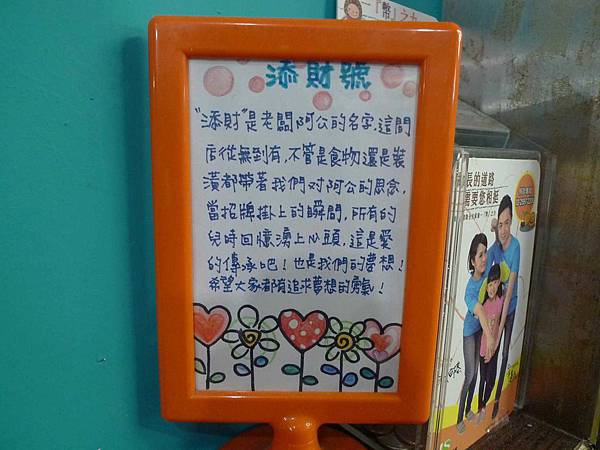 「幣」之力
添財號
"添財"是老闆阿公的名字,這間
店從無到有,不管是食物還是裝
潢都帶著我們对阿公的思念,
當招牌掛上的瞬間,所有的
兒時回憶湧上心頭,這是愛
的傳承吧!也是我們的夢想!
希望大家都有追求夢想的勇氣!
長的道路
需要您相挺